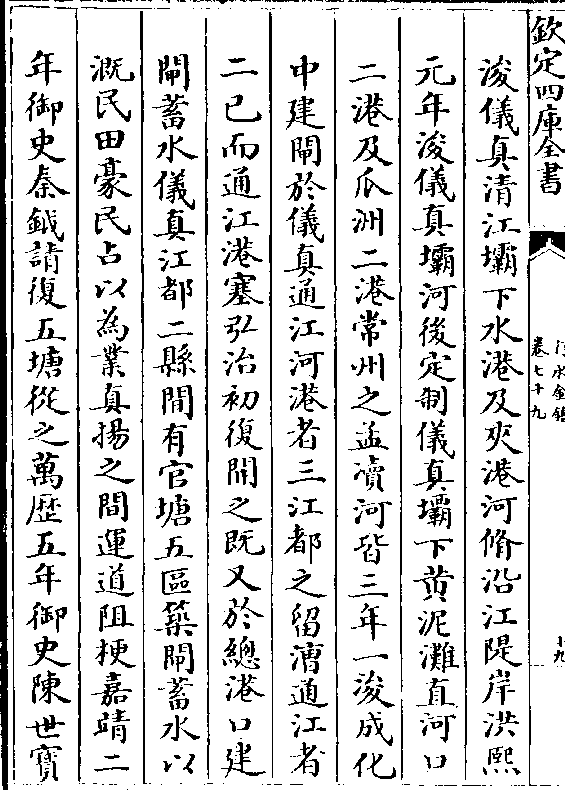 欽定四庫全書
行水金鑑
卷七十九
十九
浚儀真清江壩下水港及夾港河脩沿江隄岸洪熙
元年浚儀真壩河後定制儀真壩下黄泥灘直河口
二港及瓜洲二港常州之孟瀆河皆三年一浚成化
中建閘於儀真通江河港者三江都之留漕通江者
二已而通江港塞弘治初復開之既又於總港口建
閘蓄水儀真江都二縣間有官塘五區築閘蓄水以
溉民田豪民占以為業真揚之間運道阻梗嘉靖二
年御史秦鉞請復五塘從之萬歴五年御史陳世寶